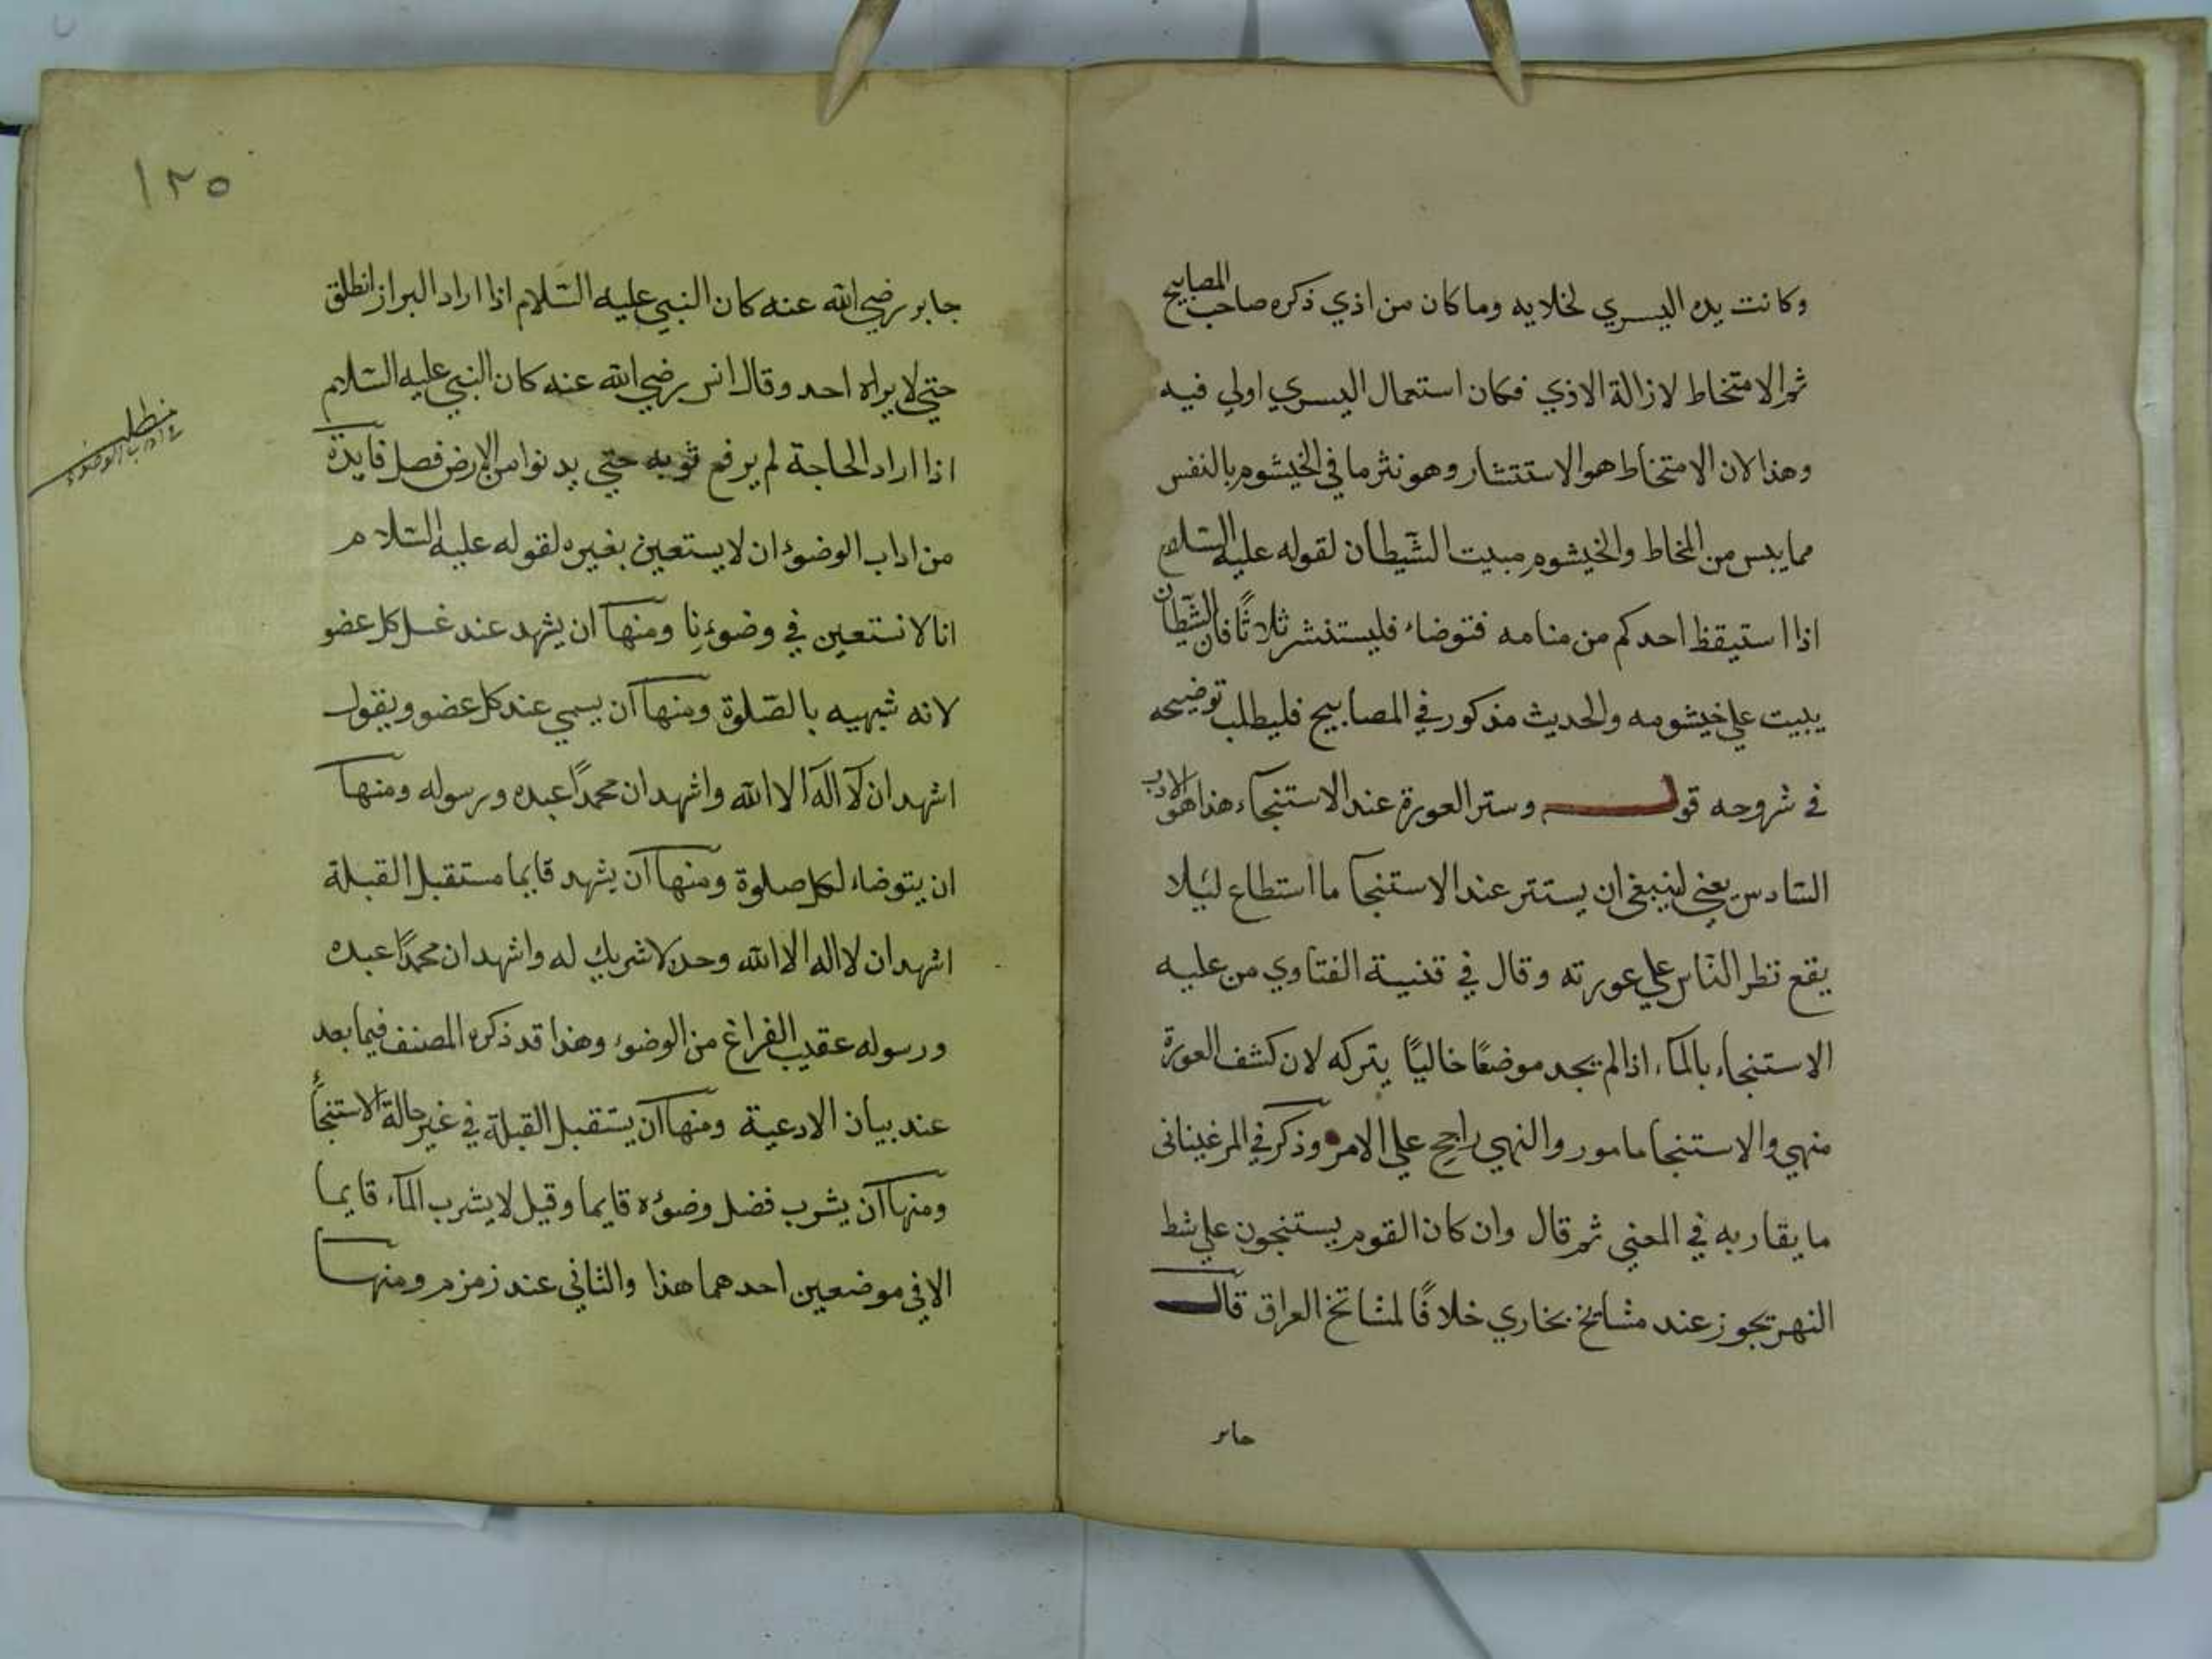 وكانت يده اليسري لخلايه وما كان من اذي ذكره صاحب المصابيح
ثم الامتخاط لازالة الاذي فكان استعمال اليسري اولي فيه
وهذا لان الامتخاط هو الاستنثار وهو نثر ما في الخيشوم بالنفس
مما يبس من المخاط والخيشوم مبيت الشيطان لقوله عليه السلام
اذا استيقظ احدكم من منامه فتوضاء فليستنثر ثلاثا فان الشيطان
يبيت علي خيشومه والحديث مذكور في المصابيح فليطلب توضيحه
في شروحه قوله وستر العورة عند الاستنجاء هذا هو الادب
السادس يعني لينبغي ان يستتر عند الاستنجا ما استطاع ليئلا
يقع نظر الناس علي عورته وقال في قنية الفتاوي من عليه
الاستنجاء بالمآء اذا لم يجد موضعًا خاليًا يتركه لان كشف العورة
منهي والاستنجا مامور والنهي راجح علي الامر وذكر في المرغيناني
ما يقاربه في المعني ثم قال وان كان القوم يستنجون علي شط
النهر يجوز عند مشائخ بخاري خلافًا لمشائخ العراق قال
جابر
١٢٥
جابر رضي الله عنه كان النبي عليه السلام اذا اراد البراز انطلق
حتي لا يراه احد وقال انس رضي الله عنه كان النبي عليه السلام
اذا اراد الحاجة لم يرفع ثوبه حتي يدنوا من الارض فصل فايدة
من اداب الوضوء ان لا يستعين بغيره لقوله عليه السلام
انا لا نستعين في وضوءنا ومنها ان يشهد عند غسل كل عضو
لانه شبهيه بالصلوة ومنها ان يسمي عند كل عضو ويقول
اشهد ان لا اله الا الله واشهد ان محمدًا عبده ورسوله ومنها
ان يتوضاء لكل صلوة ومنها ان يشهد قايما مستقبل القبلة
اشهد ان لا اله الا الله وحده لا شريك له واشهد ان محمدًا عبده
ورسوله عقيب الفراغ من الوضوء وهذا قد ذكره المصنف فيما بعد
عند بيان الادعية ومنها ان يستقبل القبلة في غير حالة الاستنجاء
ومنها ان يشرب فضل وضوءه قايما وقيل لا يشرب المآء قايما
الا في موضعين احدهما هذا والثاني عند زمزم ومنها
مطلب
في اداب الوضوء